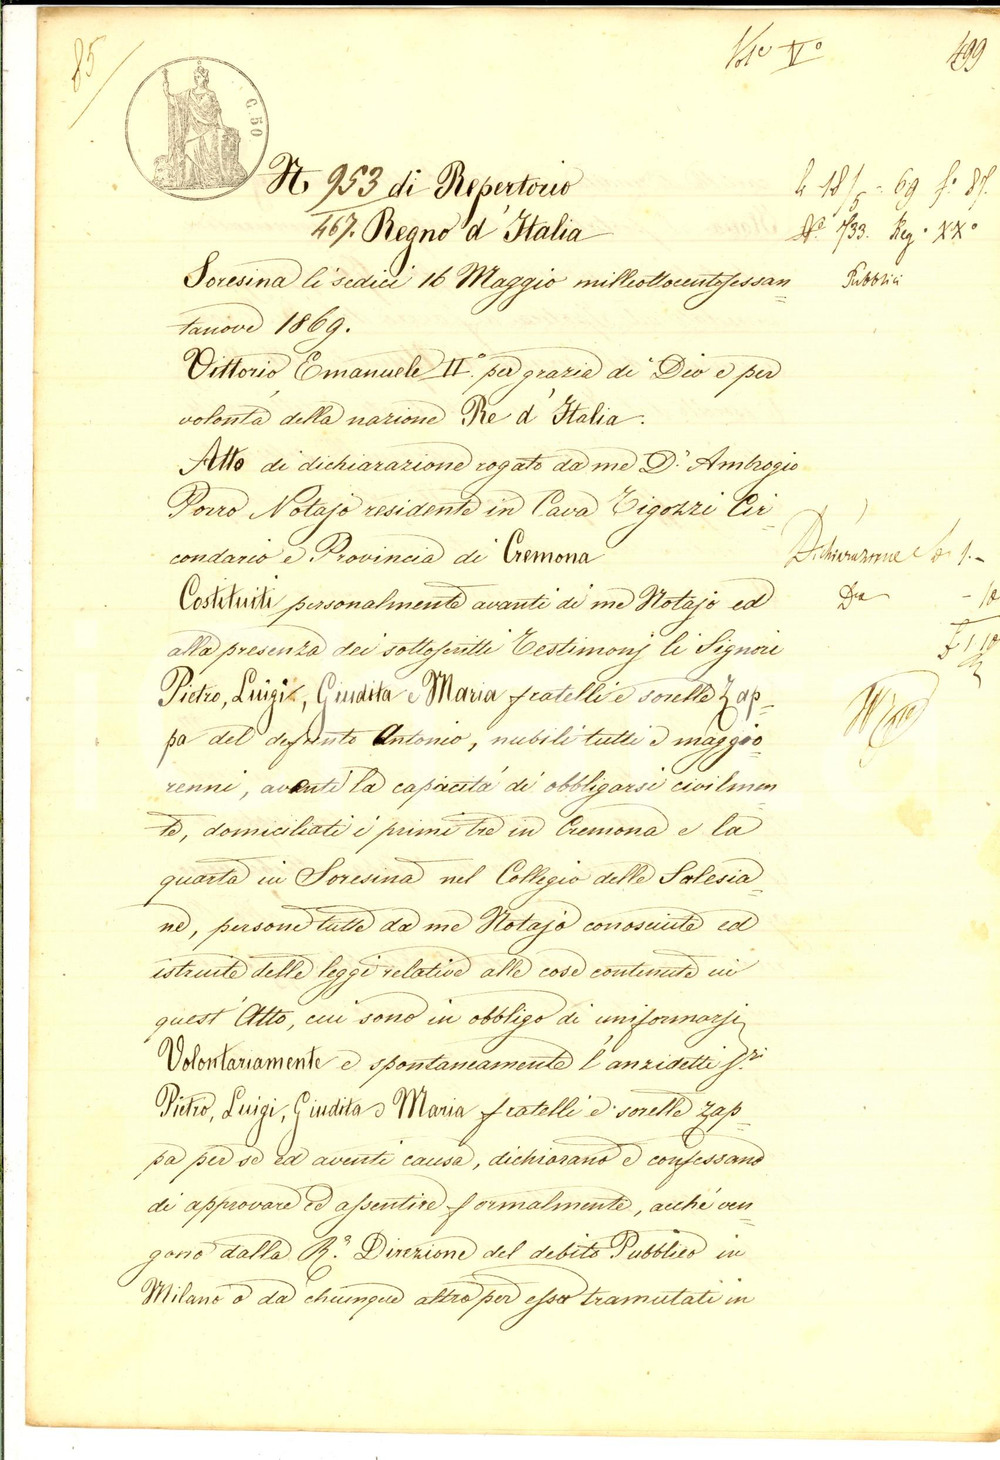 85
Vol.e V.o
499
C. 50
N. 953 di Repertorio
467. Regno d'Italia
li 18/5 - 69 f.o 87.
N.o 733. Reg.o XX.o
Pubblici
Soresina li sedici 16 Maggio milleottocentosessan=
tanove 1869.
Vittorio Emanuele II.o per grazia di Dio e per
volontà della nazione Re d'Italia.
Atto di dichiarazione rogato da me D.r Ambrogio
Porro Notajo residente in Cava Tigozzi Cir=
condario e Provincia di Cremona
Dichiarazione £ 1.-
- 10
£ 1 10
Costituiti personalmente avanti di me Notajo ed
alla presenza dei sottoscritti Testimonj li Signori
Pietro, Luigi, Giudita e Maria fratelli e sorelle Zap=
pa del defunto Antonio, nubili tutti e maggio=
renni, aventi la capacità di obbligarsi civilmen=
te, domiciliati i primi tre in Cremona e la
quarta in Soresina nel Collegio delle Salesia=
ne, persone tutte da me Notajo conosciute ed
istruite delle leggi relative alle cose contenute in
quest'Atto, cui sono in obbligo di uniformarsi
Volontariamente e spontaneamente l'anzidetti S.ri
Pietro, Luigi, Giudita e Maria fratelli e sorelle Zap=
pa per sé ed aventi causa, dichiarano e confessano
di approvare ed assentire formalmente, acché ven=
gono dalla R.a Direzione del debito Pubblico in
Milano o da chiunque altro per essa tramutati in